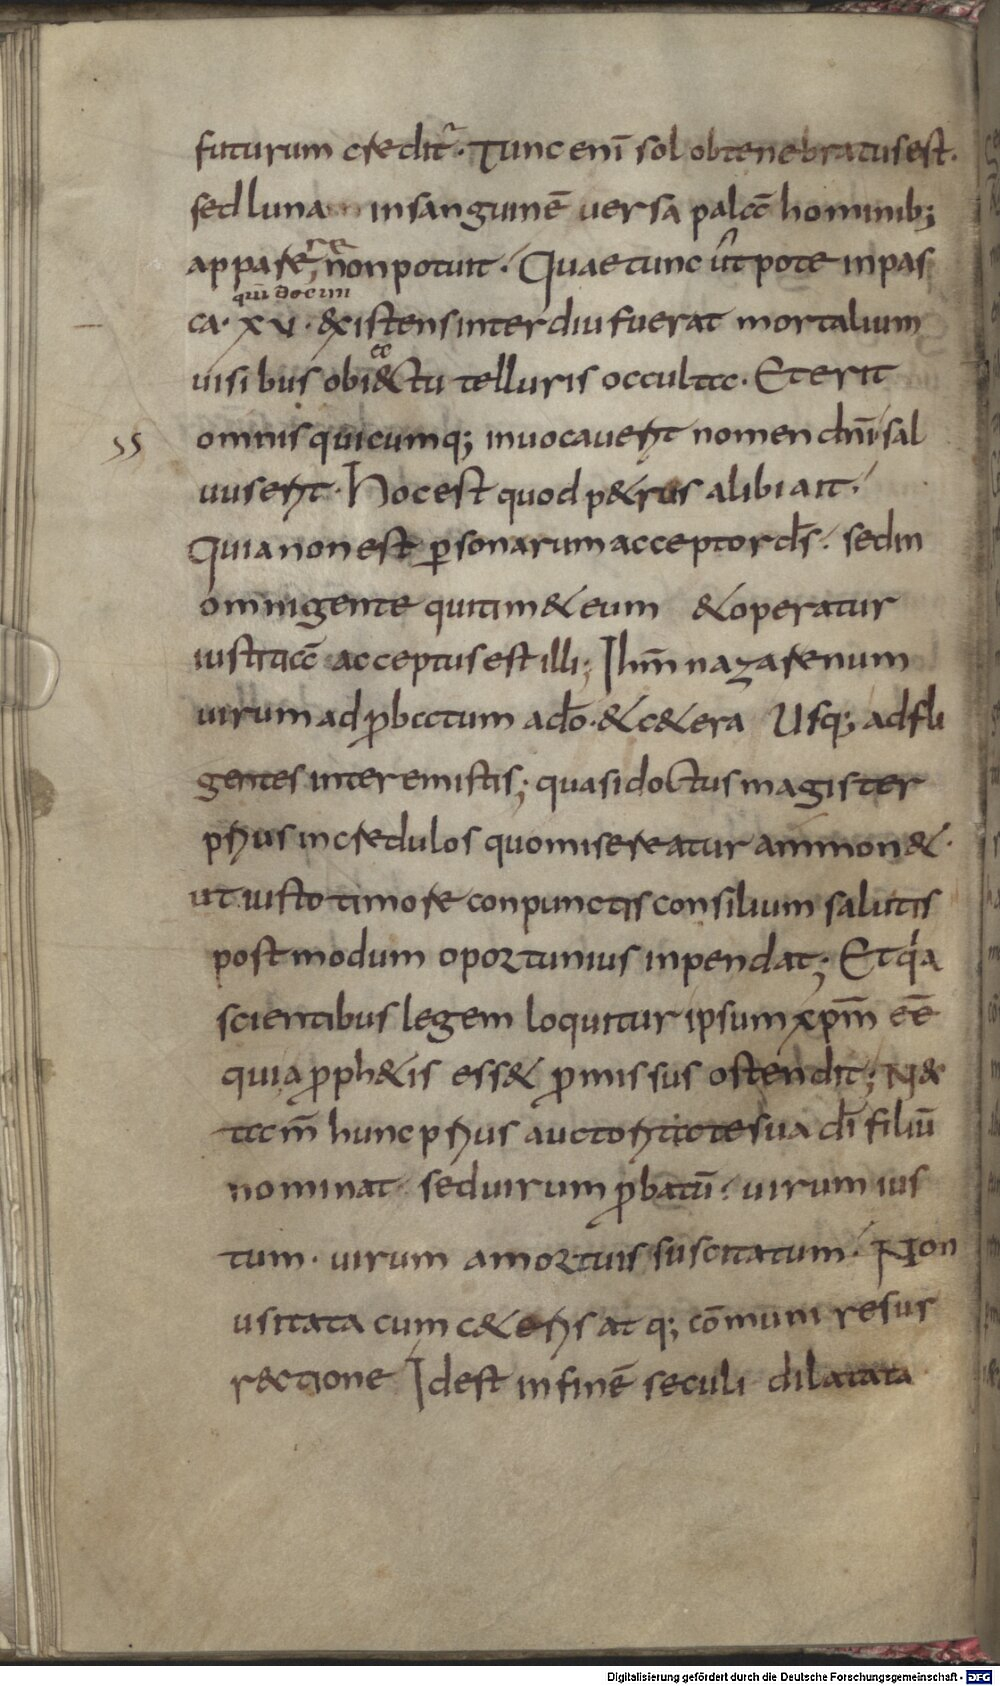 futurum credit᷑. Tunc eni̅ sol obtenebratus est.
sed luna in sanguine̅ uersa palā hominib;
rɇ
appare, n̅ non potuit. Quae tunc ut pote in pas
quin decim
ca. xv. &xistens interdiu fuerat mortalium
ec
uisibus obi&ctu telluris occulta. Et erit
ss omnis quicumq; inuocauerit nomen dn̅i sal
uus erit. Hoc est quod p&rus alibi ait.
Quia non est p̲sonarum acceptor ds̅. sed in
omni gente qui tim& eum & operatur
iustitiā acceptus est illi; Ihm̅ nazarenum
uirum adp̲batum a do̅. & c&era Usq; adfli
gentes interemistis; quasi doctus magister
prius incredulos quo misereatur ammon&.
ut iusto timore conpunctis consilium salutis
postmodum oportunius inpendat; Et qa
scientibus legem loquitur ipsum xpm̅ ee̅
qui a p̲ph&is ess& p̲missus ostendit; N&
tam̅ hunc prius auctoritate sua di̅ filiu̅
nominat. sed uirum p̲batu̅. uirum ius
tum. uirum a mortuis suscitatum. Non
usitata cum c&eris atq; co̅muni resur
rectione Idest in fine̅ seculi dilatata
Digitalisierung gefördert durch die Deutsche Forschungsgemeinschaft - DFG